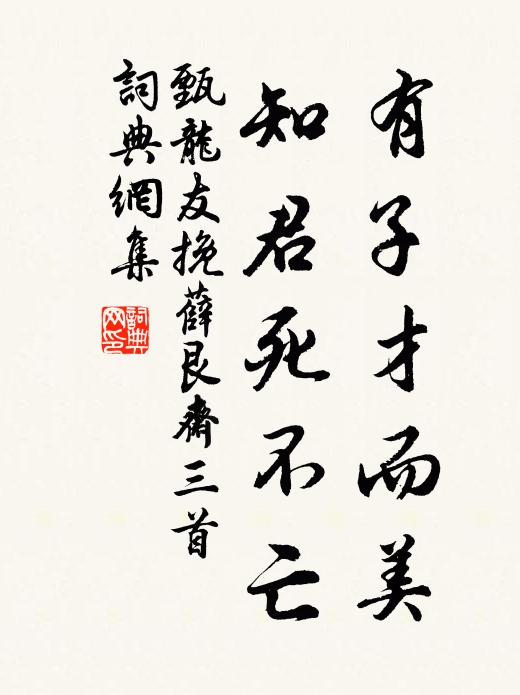 有子才而美
知君死不亡
甄龍友挽薛艮齋三首
詞典網集
詞典网印